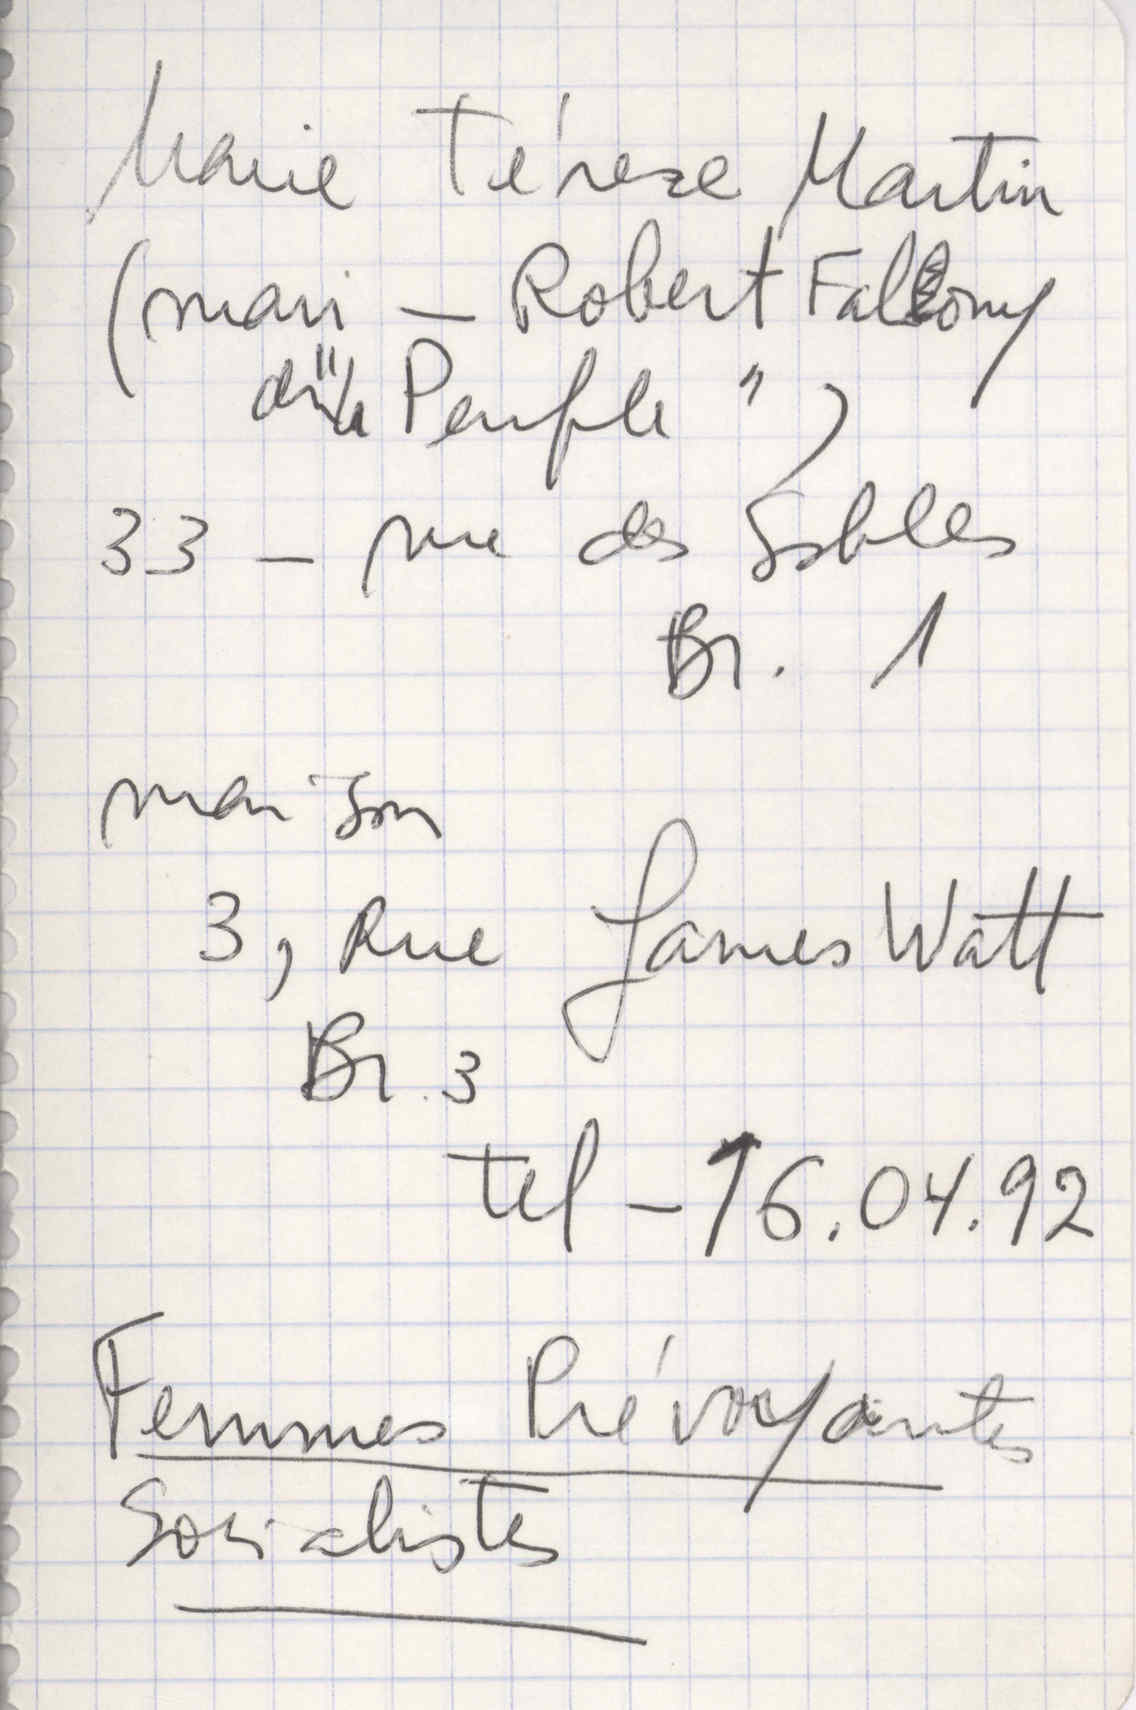 Marie Térese Martin
(mari – Robert Falony
du "Peuple")
33 – rue des Sables
Br. 1
maison
3, Rue James Watt
Br. 3
tel – 16.04.92
Femmes Prévoyantes
Socialistes